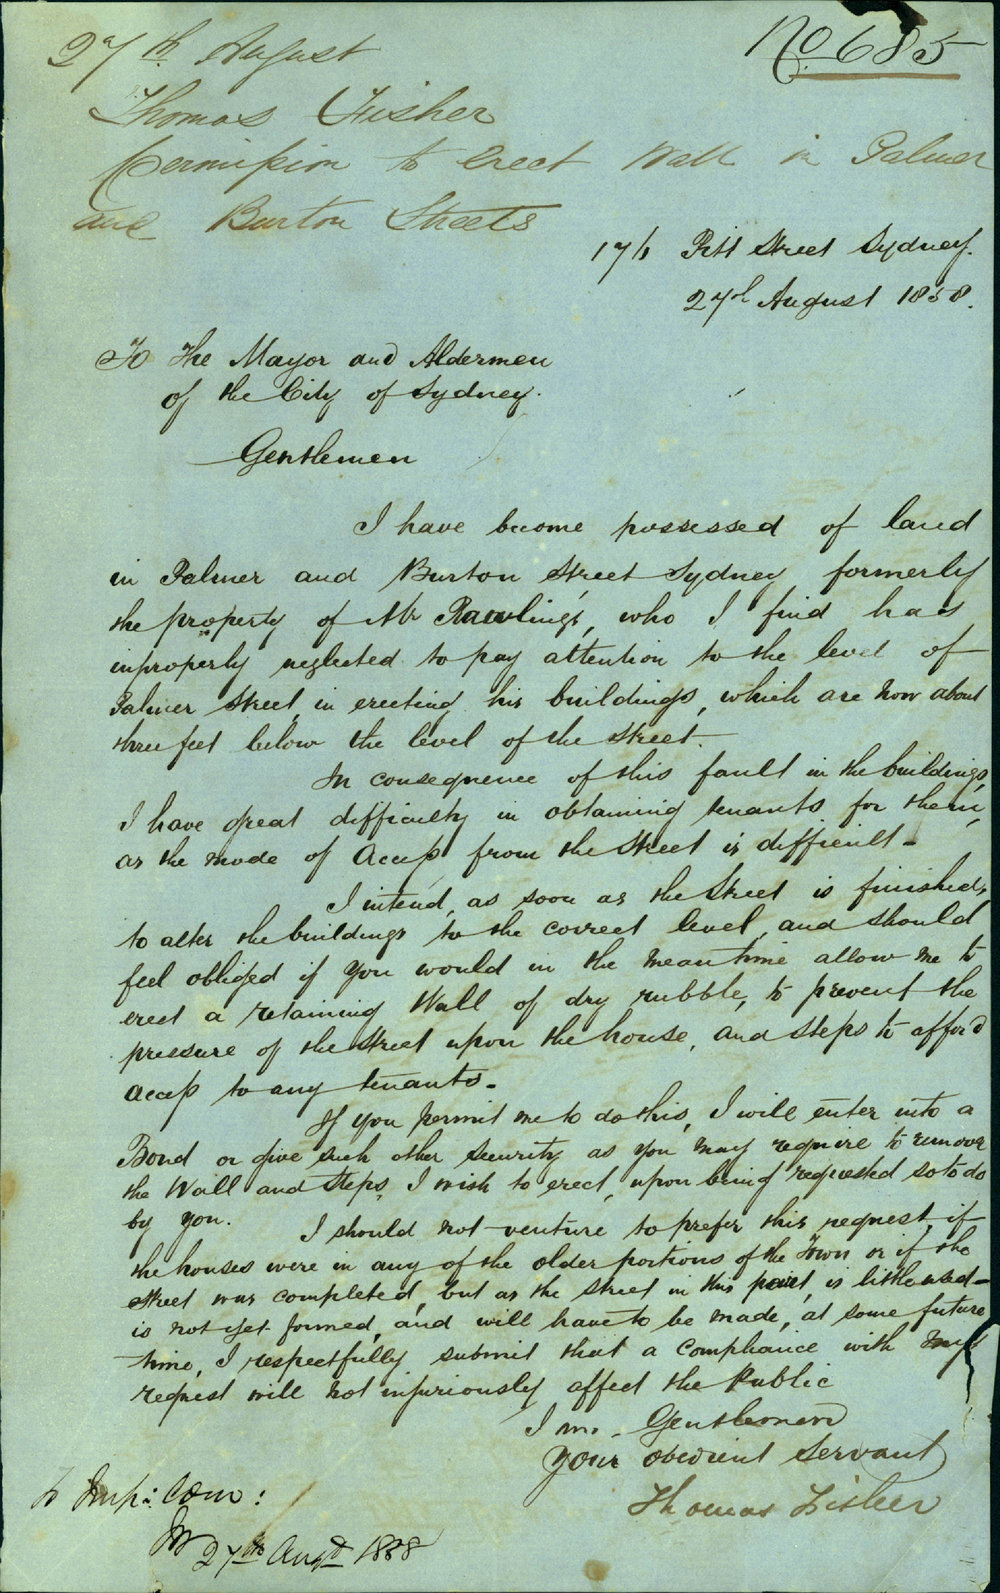 No 685
27th August
Thomas Fisher
Permission to Erect Wall in Palmer
and Burton Streets
176 Pitt Street Sydney.
27th August 1858.
To The Mayor and Aldermen
of the City of Sydney.
Gentlemen
I have become possessed of land
in Palmer and Burton Street Sydney formerly
the property of Mr Rawlings, who I find has
improperly neglected to pay attention to the level of
Palmer Street, in erecting his buildings, which are now about
three feet below the level of the Street.
In consequence of this fault in the buildings,
I have great difficulty in obtaining tenants for them,
as the mode of Access from the Street is difficult.
I intend, as soon as the Street is finished,
to alter the buildings to the correct level, and should
feel obliged if you would in the mean time allow me to
erect a retaining Wall of dry rubble, to prevent the
pressure of the Street upon the house, and Steps to afford
access to any tenants.
If you permit me to do this, I will enter into a
Bond or give such other security as you may require to remove
the Wall and Steps, I wish to erect, upon being requested so to do
by you. I should not venture to prefer this request, if
the houses were in any of the older portions of the Town or if the
Street was completed, but as the Street in this part, is little used
is not yet formed, and will have to be made, at some future
time, I respectfully submit that a Compliance with my
request will not injuriously affect the Public
I am, Gentlemen
your obedient Servant
Thomas Fisher
To Imp: Com:
27th Augt 1858